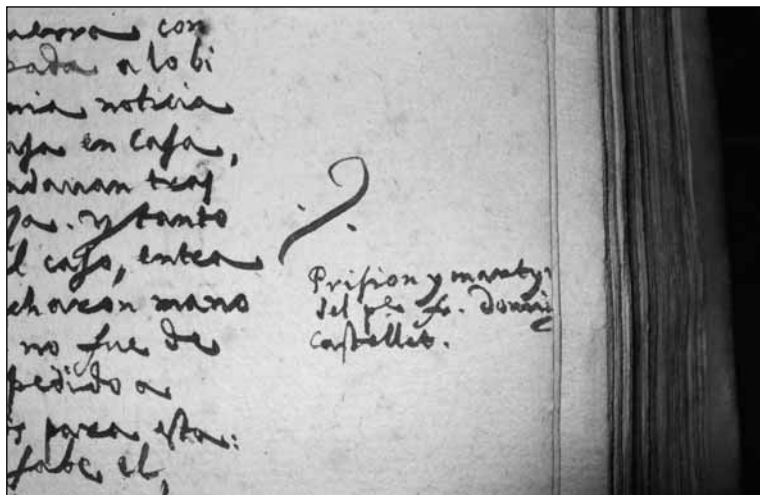 con
a lo bi
noticia
en Casa,
. y tanto
l caso, entea
echaron mano
no fue de
pedido a
parea esta:
sabe el,
Prision y marty
del pe. fr. domi
Castellet.